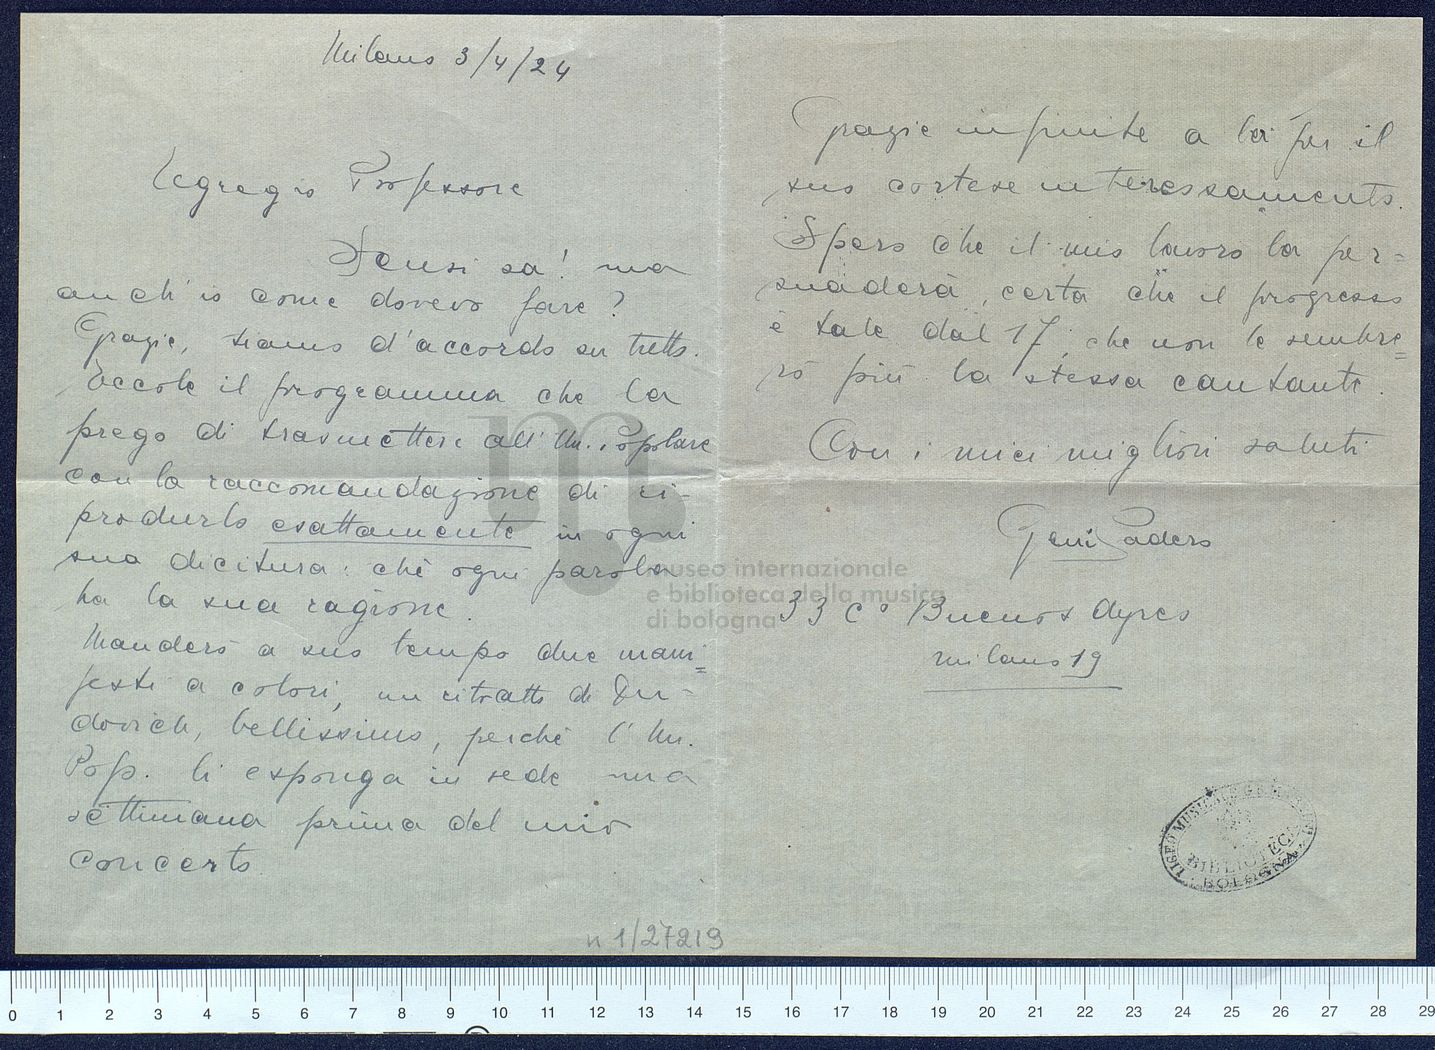 Milano 3/4/24
Egregio Professore
Scusi sa! ma
anch'io come dovevo fare?
Grazie, siamo d'accordo su tutto.
Eccole il programma che la
prego di trasmettere all'Un. Popolare
con la raccomandazione di ri-
produrlo esattamente in ogni
sua dicitura: chè ogni parola
ha la sua ragione.
Manderò a suo tempo due mani=
festi a colori, un ritratto di Du-
dovich, bellissimo, perchè l'Un.
Pop. li esponga in sede una
settimana prima del mio
concerto
Grazie infinite a lei per il
suo cortese interessamento.
Spero che il mio lavoro la per=
suaderà, certa che il progresso
è tale dal 17, che non le sembre=
rò più la stessa cantante.
Con i miei migliori saluti
Geni Sadero
33 Co Buenos Ayres
Milano 19
museo internazionale
e biblioteca della musica
di bologna
LICEO MUSICALE
BIBLIOTECA
BOLOGNA
n 1/27219
0 1 2 3 4 5 6 7 8 9 10 11 12 13 14 15 16 17 18 19 20 21 22 23 24 25 26 27 28 29